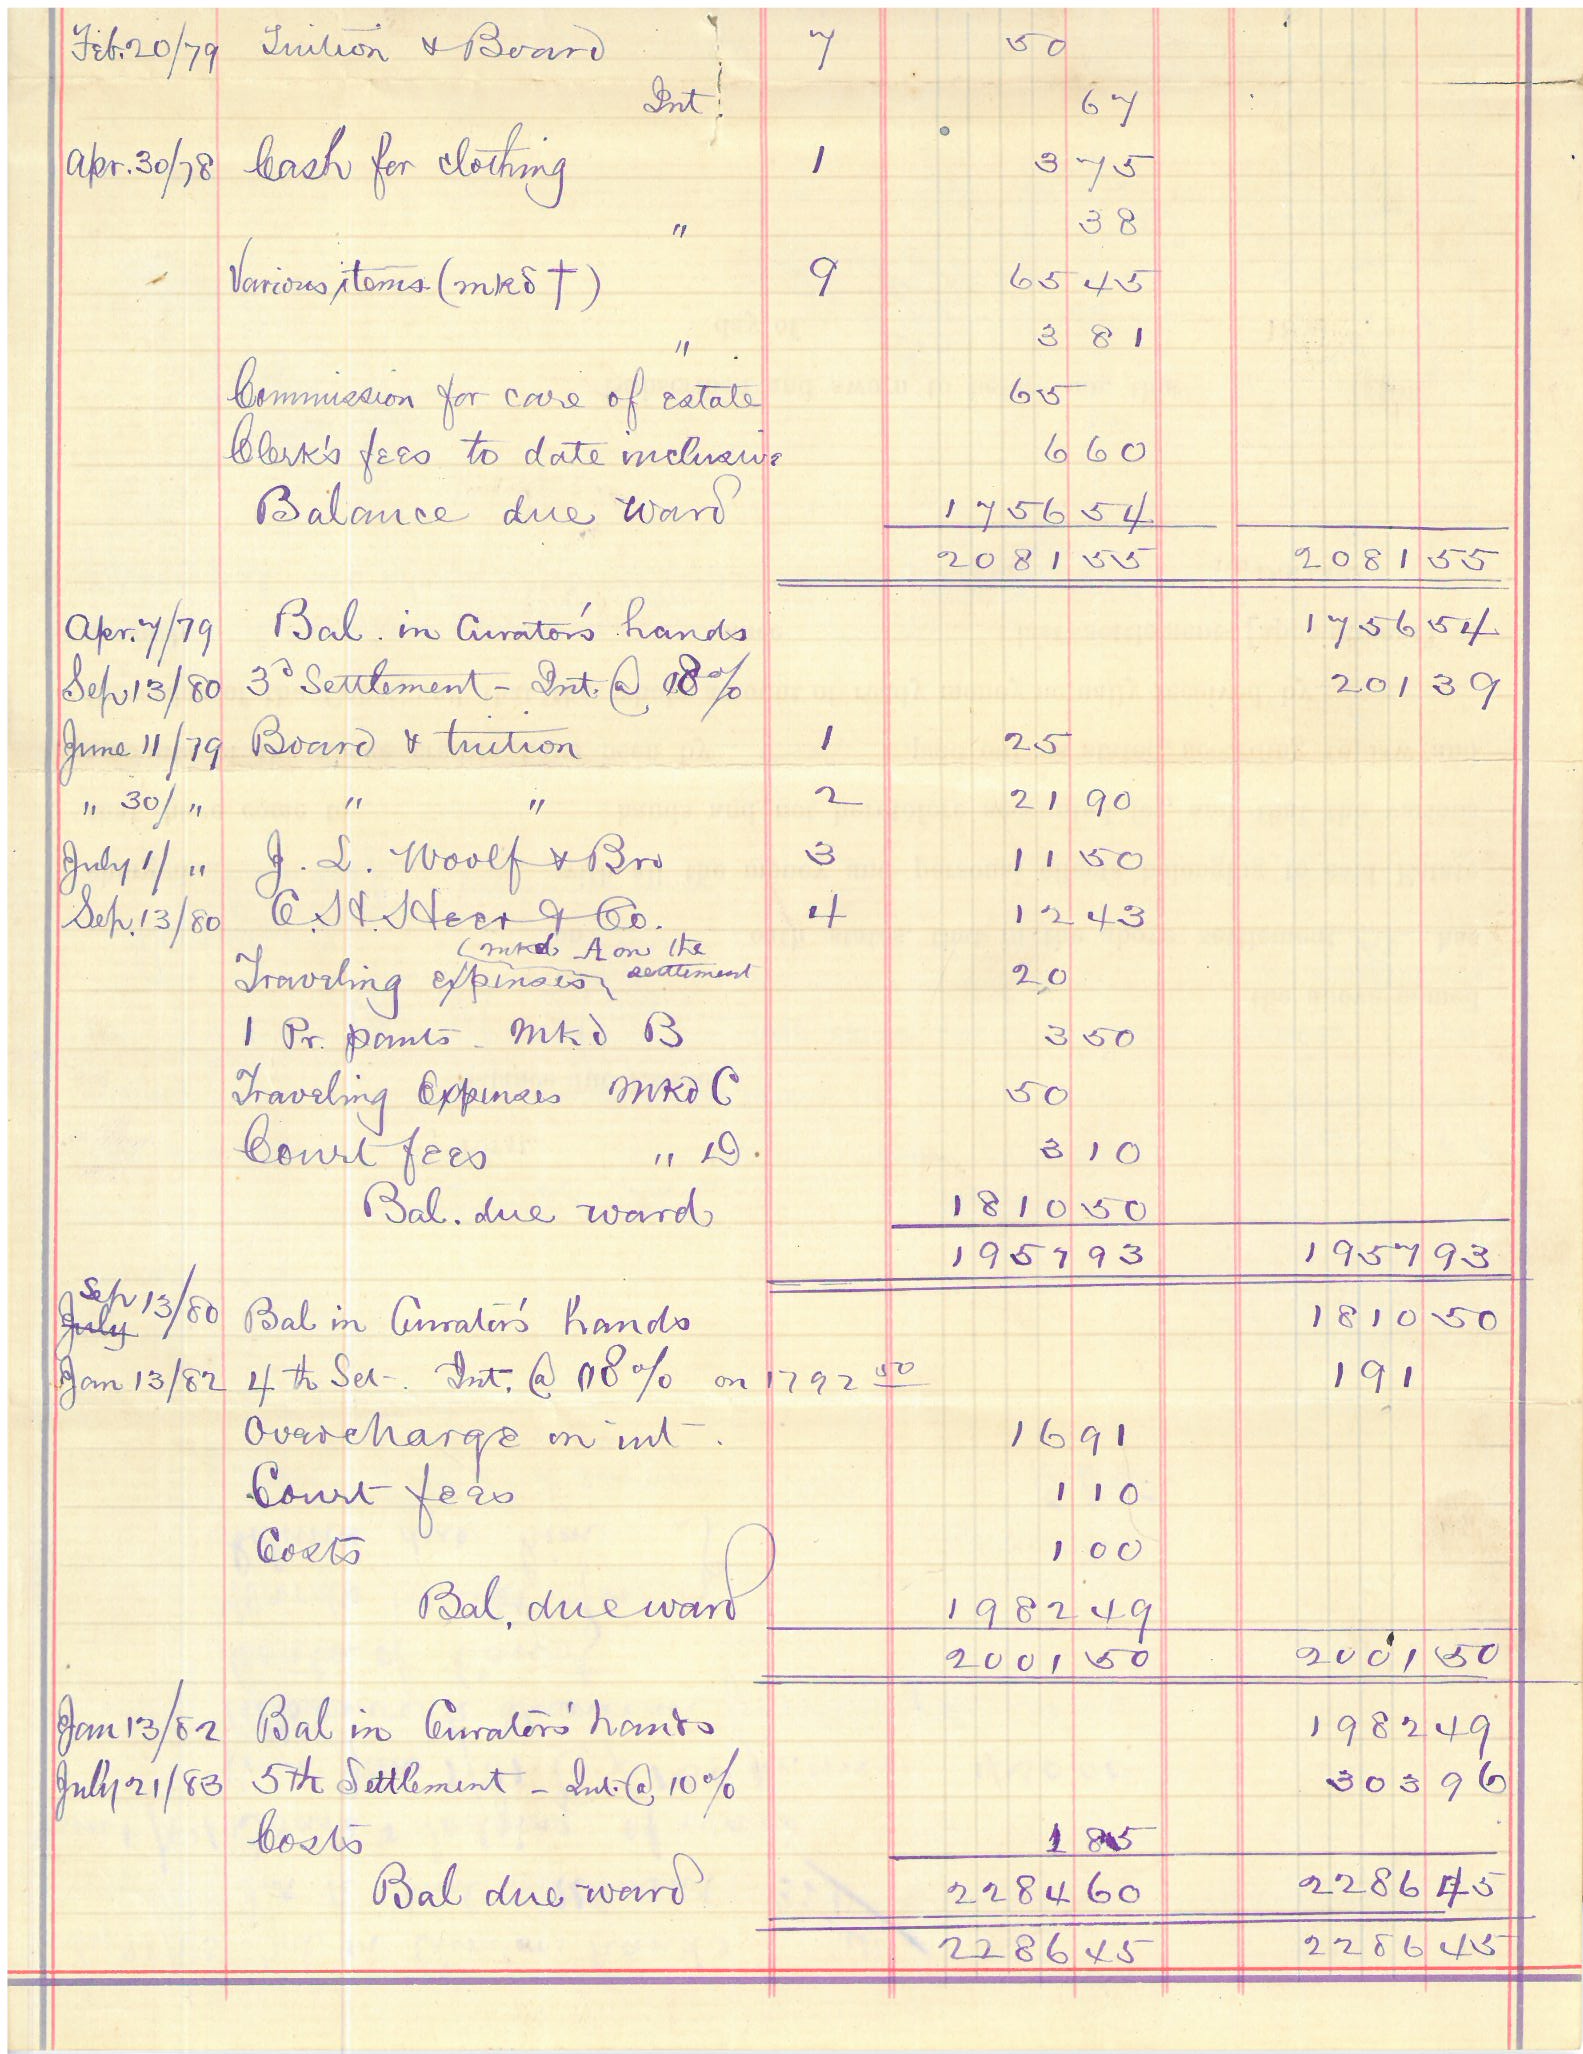 Feb. 20/79 Tuition & Board 7 50
Int. 67
Apr. 30/78 Cash for clothing 1 3 75
" 38
Various items (mkd †) 9 65 45
" 3 81
Commission for care of estate 65
Clerk's fees to date inclusive 6 60
Balance due ward 1756 54
2081 55 2081 55
Apr. 7/79 Bal. in Curator's hands 1756 54
Sep 13/80 3d Settlement - Int. @ 8% 201 39
June 11/79 Board & tuition 1 25
" 30/ " " " 2 21 90
July 1/ " J. L. Woolf & Bro 3 11 50
Sep. 13/80 C. H. Heer & Co. 4 12 43
(mkd A on the
Traveling expenses, settlement 20
1 Pr. pants - Mkd B 3 50
Traveling Expenses Mkd C 50
Court fees " D. 3 10
Bal. due ward 1810 50
1957 93 1957 93
Sep
July 13/80 Bal in Curator's hands 1810 50
Jan 13/82 4th Set-. Int. @ 8% on 1792 50 191
Overcharge on int. 16 91
Court fees 1 10
Costs 1 00
Bal. due ward 1982 49
2001 50 2001 50
Jan 13/82 Bal in Curator's hands 1982 49
July 21/83 5th Settlement - Int. @ 10% 303 96
Costs 1 85
Bal due ward 2284 60 2286 45
2286 45 2286 45